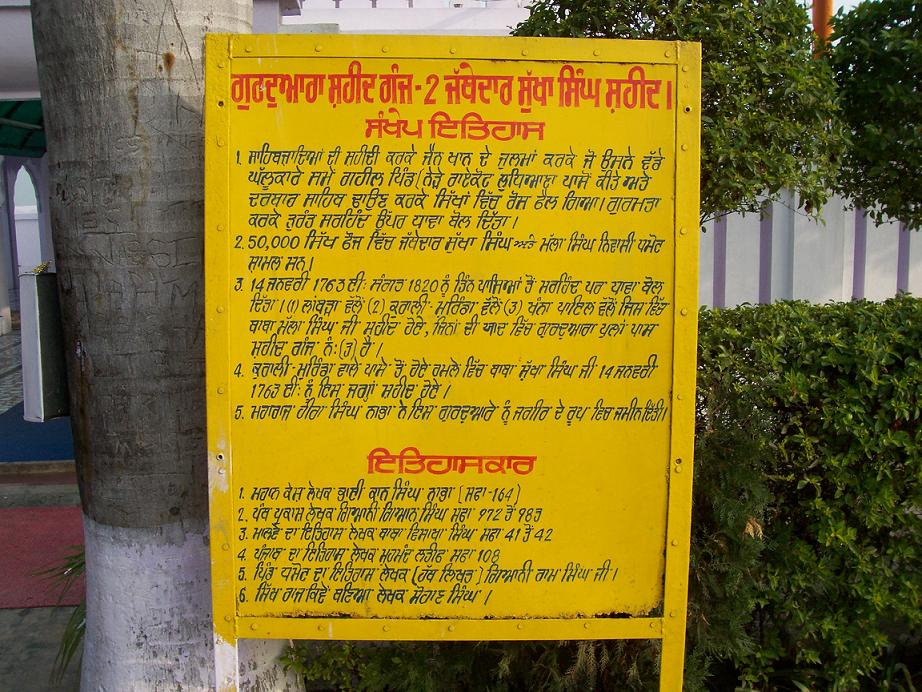 ਗੁਰਦੁਆਰਾ ਸ਼ਹੀਦ ਗੰਜ - 2 ਜੱਥੇਦਾਰ ਸੁੱਖਾ ਸਿੰਘ ਸ਼ਹੀਦ ।
ਸੰਖੇਪ ਇਤਿਹਾਸ
1. ਸਾਹਿਬਜਾਦਿਆਂ ਦੀ ਸ਼ਹੀਦੀ ਕਰਕੇ ਜੈਨ ਖਾਨ ਦੇ ਜੁਲਮਾਂ ਕਰਕੇ ਜੋ ਉਸਨੇ ਵੱਡੇ
ਘੱਲੂਕਾਰੇ ਸਮੇਂ ਗਹੀਲ ਪਿੰਡ (ਨੇੜੇ ਰਾਏਕੋਟ ਲੁਧਿਆਣਾ ਪਾਸੋਂ ਕੀਤੇ ਅਤੇ
ਦਰਬਾਰ ਸਾਹਿਬ ਢਾਉਣ ਕਰਕੇ ਸਿੱਖਾਂ ਵਿੱਚ ਰੋਸ ਫੈਲ ਗਿਆ। ਗੁਰਮਤਾ
ਕਰਕੇ ਤੁਰੰਤ ਸਰਹਿੰਦ ਉਪਰ ਧਾਵਾ ਬੋਲ ਦਿੱਤਾ ।
2. 50,000 ਸਿੱਖ ਫੌਜ ਵਿੱਚ ਜੱਥੇਦਾਰ ਸੁੱਖਾ ਸਿੰਘ ਅਤੇ ਮੱਲਾ ਸਿੰਘ ਨਿਵਾਸੀ ਧਮੋਟ
ਸ਼ਾਮਲ ਸਨ ।
3. 14 ਜਨਵਰੀ 1763 ਈ: ਸੰਗਤ 1820 ਨੂੰ ਤਿੰਨ ਪਾਸਿਆਂ ਤੋਂ ਸਰਹਿੰਦ ਪਰ ਧਾਵਾ ਬੋਲ
ਦਿੱਤਾ। (1) ਵੱਲੋਂ (2) ਕੁਰਾਲੀ-ਮਰਿੰਡਾ ਵੱਲੋਂ (3) ਖੰਨਾ ਪਾਇਲ ਵੱਲੋਂ ਜਿਸ ਵਿੱਚ
ਬਾਬਾ ਮੱਲਾ ਸਿੰਘ ਜੀ ਸ਼ਹੀਦ ਹੋਏ, ਜਿਨਾਂ ਦੀ ਯਾਦ ਵਿੱਚ ਗੁਰਦੁਆਰਾ ਪੁਲਾਂ ਪਾਸ
ਸ਼ਹੀਦ ਗੰਜ ਨੰ: (3) ਹੈ ।
4. ਕੁਰਾਲੀ-ਮੁਰਿੰਡਾ ਵਾਲੇ ਪਾਸੇ ਤੋਂ ਹੋਏ ਹਮਲੇ ਵਿੱਚ ਬਾਬਾ ਸੁੱਖਾ ਸਿੰਘ ਜੀ 14 ਜਨਵਰੀ
1763 ਈ: ਨੂੰ ਇਸ ਜਗ੍ਹਾ ਸ਼ਹੀਦ ਹੋਏ ।
5. ਮਹਾਰਾਜ ਹੀਰਾ ਸਿੰਘ ਨਾਭਾ ਨੇ ਇਸ ਗੁਰਦੁਆਰੇ ਨੂੰ ਜਗੀਰ ਦੇ ਰੂਪ ਵਿਚ ਜਮੀਨ ਦਿੱਤੀ।
ਇਤਿਹਾਸਕਾਰ
1. ਮਹਾਨ ਕੋਸ਼ ਲੇਖਕ ਭਾਈ ਕਾਨ ਸਿੰਘ ਨਾਭਾ (ਸਫਾ-164)
2. ਪੰਥ ਪ੍ਰਕਾਸ਼ ਲੇਖਕ ਗਿਆਨੀ ਗਿਆਨ ਸਿੰਘ ਸਫਾ 972 ਤੋਂ 983
3. ਮਾਲਵੇ ਦਾ ਇਤਿਹਾਸ ਲੇਖਕ ਬਾਬਾ ਵਿਸਾਖਾ ਸਿੰਘ ਸਫਾ 41 ਤੋਂ 42
4. ਪੰਜਾਬ ਦਾ ਇਤਿਹਾਸ ਲੇਖਕ ਮੁਹੰਮਦ ਲਤੀਫ ਸਫਾ 108
5. ਪਿੰਡ ਧਮੋਟ ਦਾ ਇਤਿਹਾਸ ਲੇਖਕ (ਹੱਥ ਲਿਖਤ) ਗਿਆਨੀ ਰਾਮ ਸਿੰਘ ਜੀ ।
6. ਸਿੱਖ ਰਾਜ ਕਿਵੇਂ ਬਣਿਆ ਲੇਖਕ ਸੋਹਣ ਸਿੰਘ ।